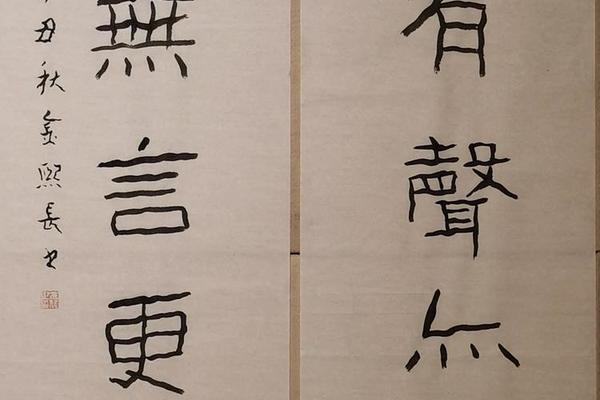 有聲
無言更
丑秋金熙長书